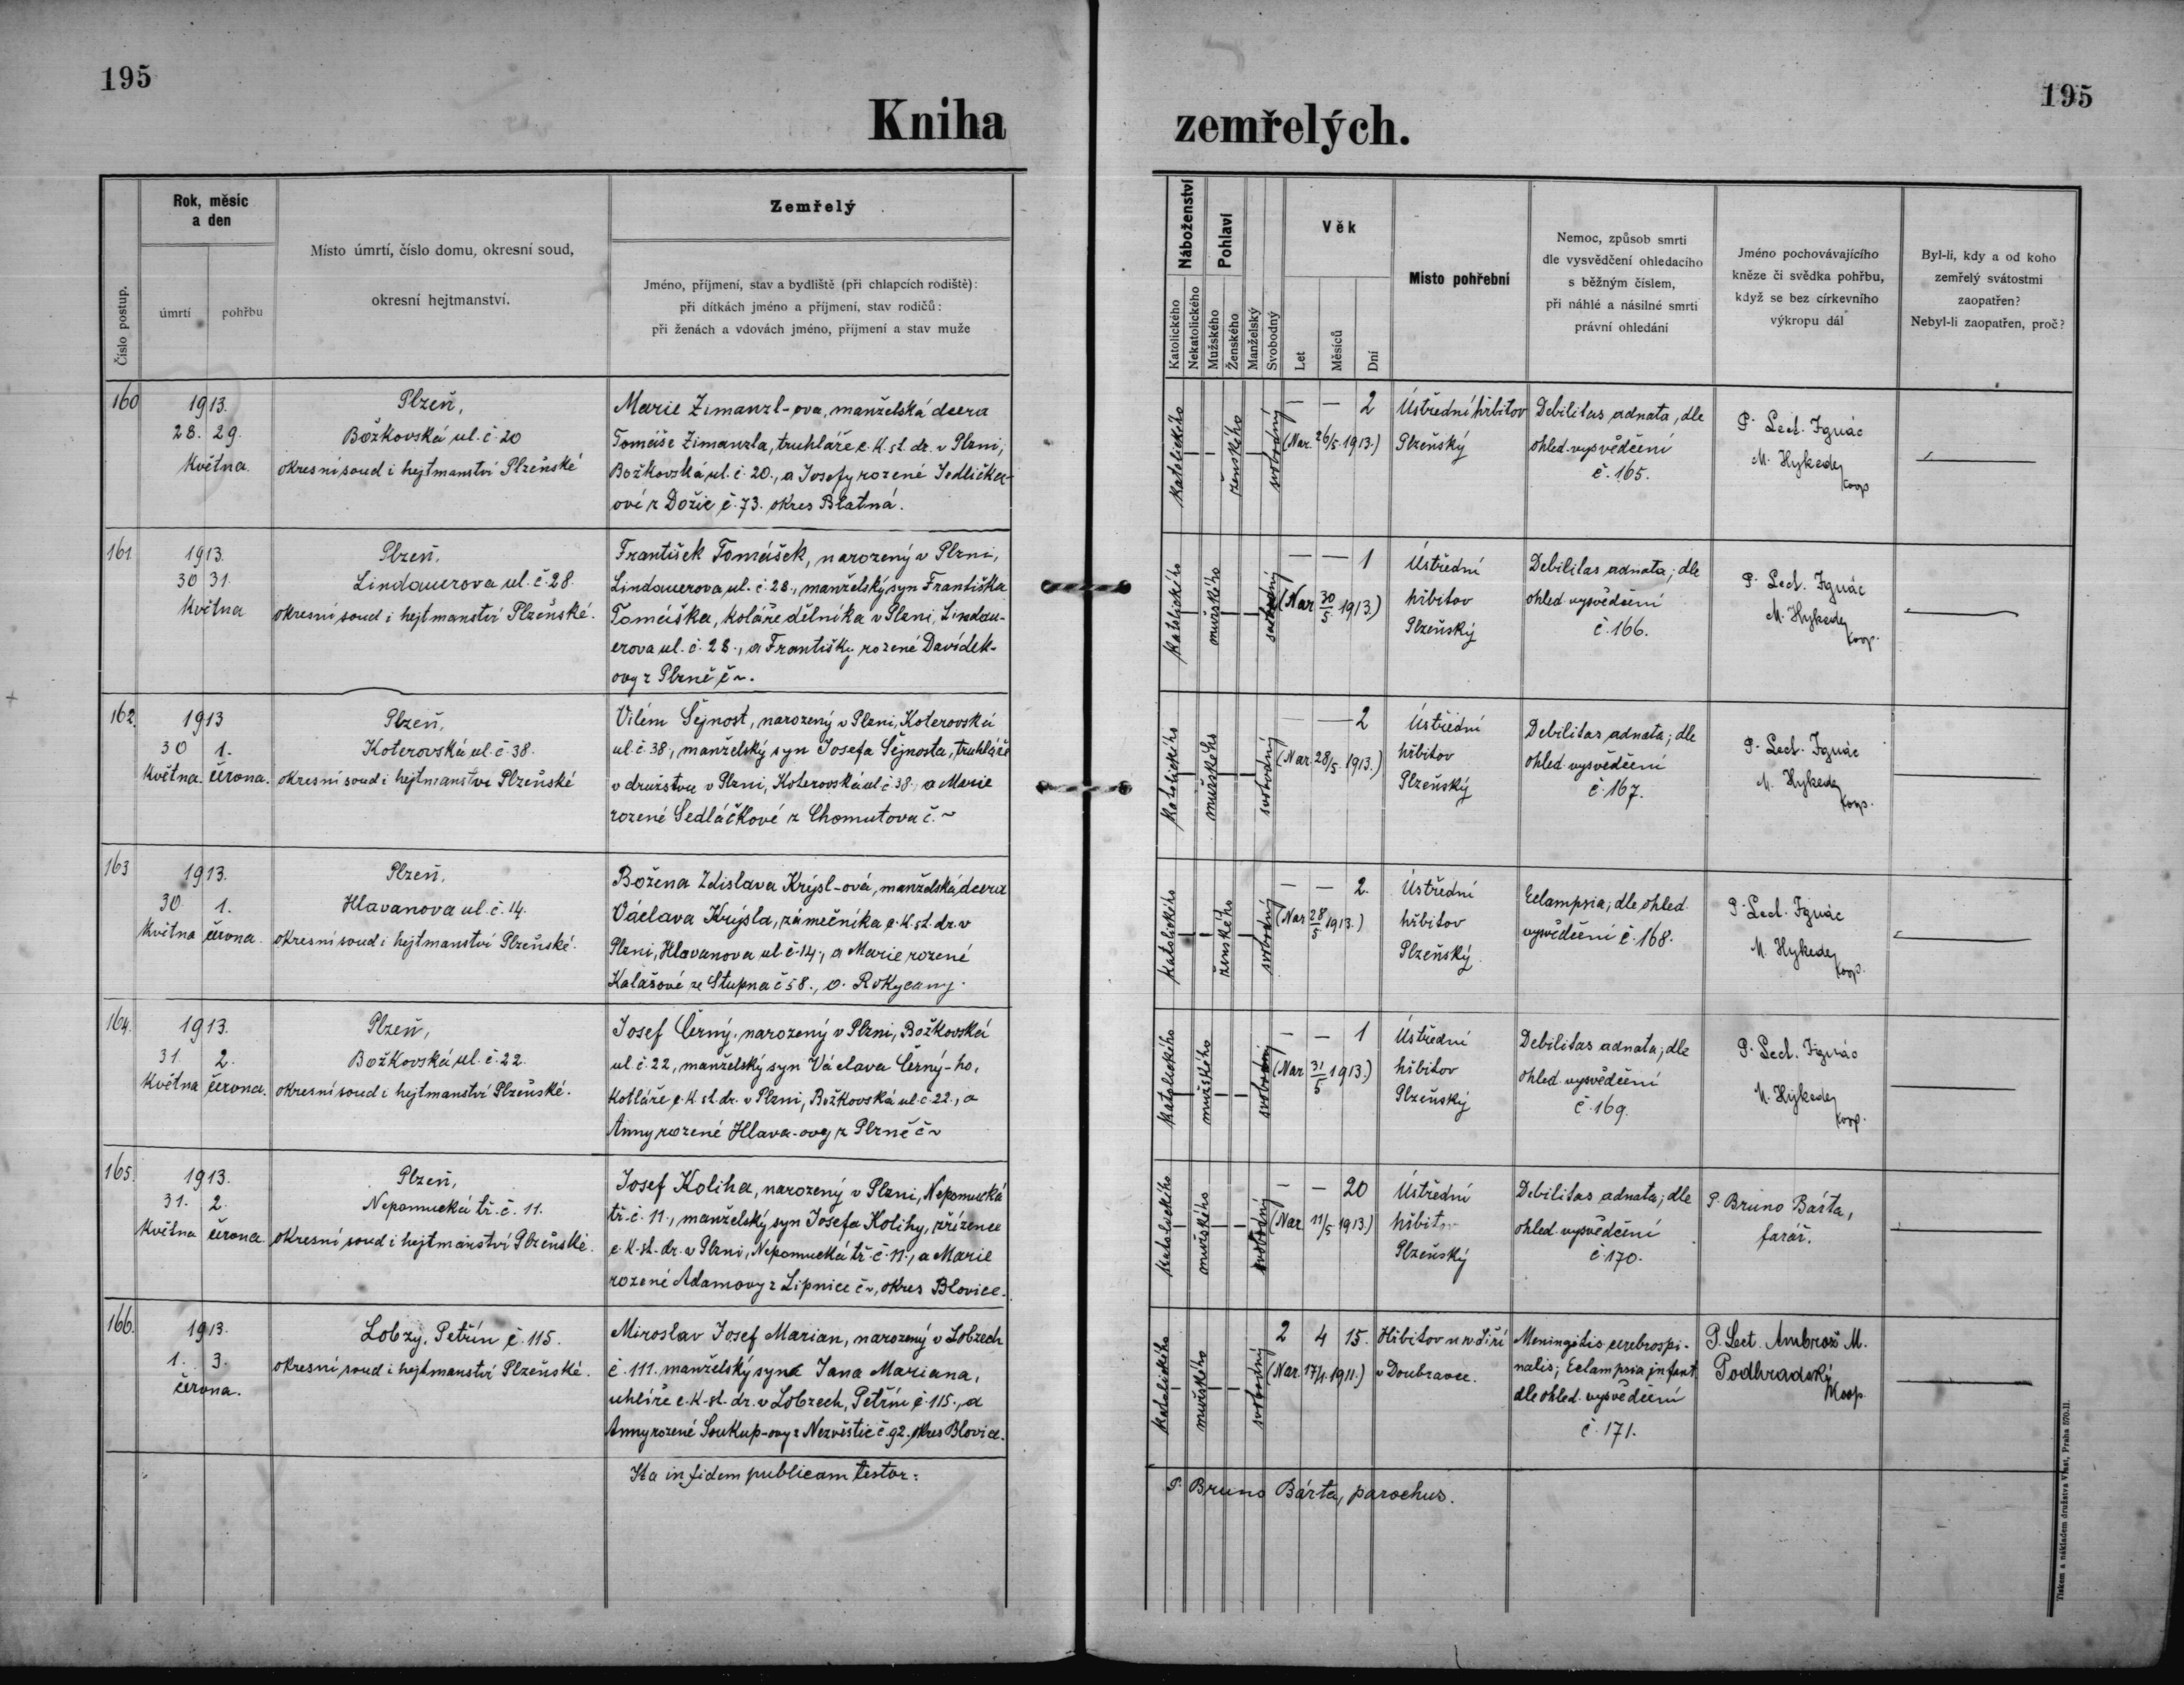 195
195
Kniha
zemřelých.
Číslo postup.
Rok, měsíc
a den
úmrtí
pohřbu
Místo úmrtí, číslo domu, okresní soud,
okresní hejtmanství.
Zemřelý
Jméno, příjmení, stav a bydliště (při chlapcích rodiště):
při dítkách jméno a příjmení, stav rodičů:
při ženách a vdovách jméno, příjmení a stav muže
Náboženství
Katolického
Nekatolického
Pohlaví
Mužského
Ženského
Manželský
Svobodný
Věk
Let
Měsíců
Dní
Místo pohřební
Nemoc, způsob smrti
dle vysvědčení ohledacího
s běžným číslem,
při náhlé a násilné smrti
právní ohledání
Jméno pochovávajícího
kněze či svědka pohřbu,
když se bez církevního
výkropu dál
Byl-li, kdy a od koho
zemřelý svátostmi
zaopatřen?
Nebyl-li zaopatřen, proč?
160
1913.
28. 29.
Května.
Plzeň,
Božkovská ul. č. 20
okresní soud i hejtmanství Plzeňské
Marie Zimanzl-ova, manželská dcera
Tomáše Zimanzla, truhláře c. k. st. dr. v Plzni,
Božkovská ul. č. 20., a Josefy rozené Jedlička-
ové z Dožic č. 73. okres Blatná.
katolického
ženského
svobodný
— — 2
(Nar. 26/5. 1913.)
Ústřední hřbitov
Plzeňský
Debilitas adnata, dle
ohled. vysvědčení
č. 165.
P. Lect. Ignác
M. Hykede
koop
161
1913.
30 31.
Května
Plzeň,
Lindauerova ul. č. 28.
okresní soud i hejtmanství Plzeňské.
František Tomášek, narozený v Plzni,
Lindauerova ul. č. 28., manželský syn Františka
Tomáška, koláře dělníka v Plzni, Lindau-
erova ul. č. 28., a Františky rozené Davídek-
ovy z Plzně č ~.
katolického
mužského
svobodný
— — 1
(Nar. 30/5. 1913.)
Ústřední
hřbitov
Plzeňský
Debilitas adnata; dle
ohled. vysvědčení
č. 166.
P. Lect. Ignác
M. Hykede
koop.
162.
1913
30 1.
Května. června.
Plzeň,
Koterovská ul. č. 38.
okresní soud i hejtmanství Plzeňské
Vilém Šejnost, narozený v Plzni, Koterovská
ul. č. 38., manželský syn Josefa Šejnosta, truhláře
v družstvu v Plzni, Koterovská ul. č. 38., a Marie
rozené Sedláčkové z Chomutova č. ~
katolického
mužského
svobodný
— — 2
(Nar. 28/5. 1913.)
Ústřední
hřbitov
Plzeňský
Debilitas adnata; dle
ohled. vysvědčení
č. 167.
P. Lect. Ignác
M. Hykede
koop.
163
1913.
30. 1.
Května června.
Plzeň.
Hlavanova ul. č. 14.
okresní soud i hejtmanství Plzeňské.
Božena Zdislava Krýsl-ová, manželská dcera
Václava Krýsla, zámečníka c. k. st. dr. v
Plzni, Hlavanova ul. č. 14., a Marie rozené
Kalašové ze Stupna č 58., o. Rokycany.
katolického
ženského
svobodný
— — 2.
(Nar. 28/5 1913.)
Ústřední
hřbitov
Plzeňský
Eclampsia; dle ohled.
vysvědčení č. 168.
P. Lect. Ignác
M. Hykede
koop.
164.
1913.
31 2.
Května června.
Plzeň,
Božkovská ul. č. 22.
okresní soud i hejtmanství Plzeňské.
Josef Černý, narozený v Plzni, Božkovská
ul. č. 22, manželský syn Václava Černý-ho,
kotláře c. k. st. dr. v Plzni, Božkovská ul. č. 22., a
Anny rozené Hlava-ovy z Plzně č ~
katolického
mužského
svobodný
— — 1
(Nar. 31/5 1913.)
Ústřední
hřbitov
Plzeňský
Debilitas adnata; dle
ohled. vysvědčení
č. 169.
P. Lect. Ignác
M. Hykede
koop.
165.
1913.
31. 2.
Května června
Plzeň,
Nepomucká tř. č. 11.
okresní soud i hejtmanství Plzeňské.
Josef Koliha, narozený v Plzni, Nepomucká
tř. č. 11., manželský syn Josefa Kolihy, zřízence
c. k. st. dr. v Plzni, Nepomucká tř. č. 11., a Marie
rozené Adamovy z Lipnice č ~, okres Blovice.
katolického
mužského
svobodný
— — 20
(Nar. 11/5 1913.)
Ústřední
hřbitov
Plzeňský
Debilitas adnata; dle
ohled. vysvědčení
č. 170.
P. Bruno Bárta,
farář.
166.
1913.
1. 3.
června.
Lobzy, Petřín č. 115.
okresní soud i hejtmanství Plzeňské.
Miroslav Josef Marian, narozený v Lobzech
č. 111. manželský syn Jana Mariana,
uhlíře c. k. st. dr. v Lobzech, Petřín č. 115., a
Anny rozené Soukup-ovy z Nezvěstic č. 92. okres Blovice.
katolického
mužského
svobodný
2 4 15.
(Nar. 17/1. 1911.)
Hřbitov u sv. Jiří
v Doubravce.
Meningitis cerebrospi-
nalis; Eclampsia infant.
dle ohled. vysvědčení
č. 171.
P. Lect. Ambrož M.
Podhradský
koop.
Ita in fidem publicam testor:
P. Bruno Bárta, parochus.
Tiskem a nákladem družstva Vlast, Praha 570-II.